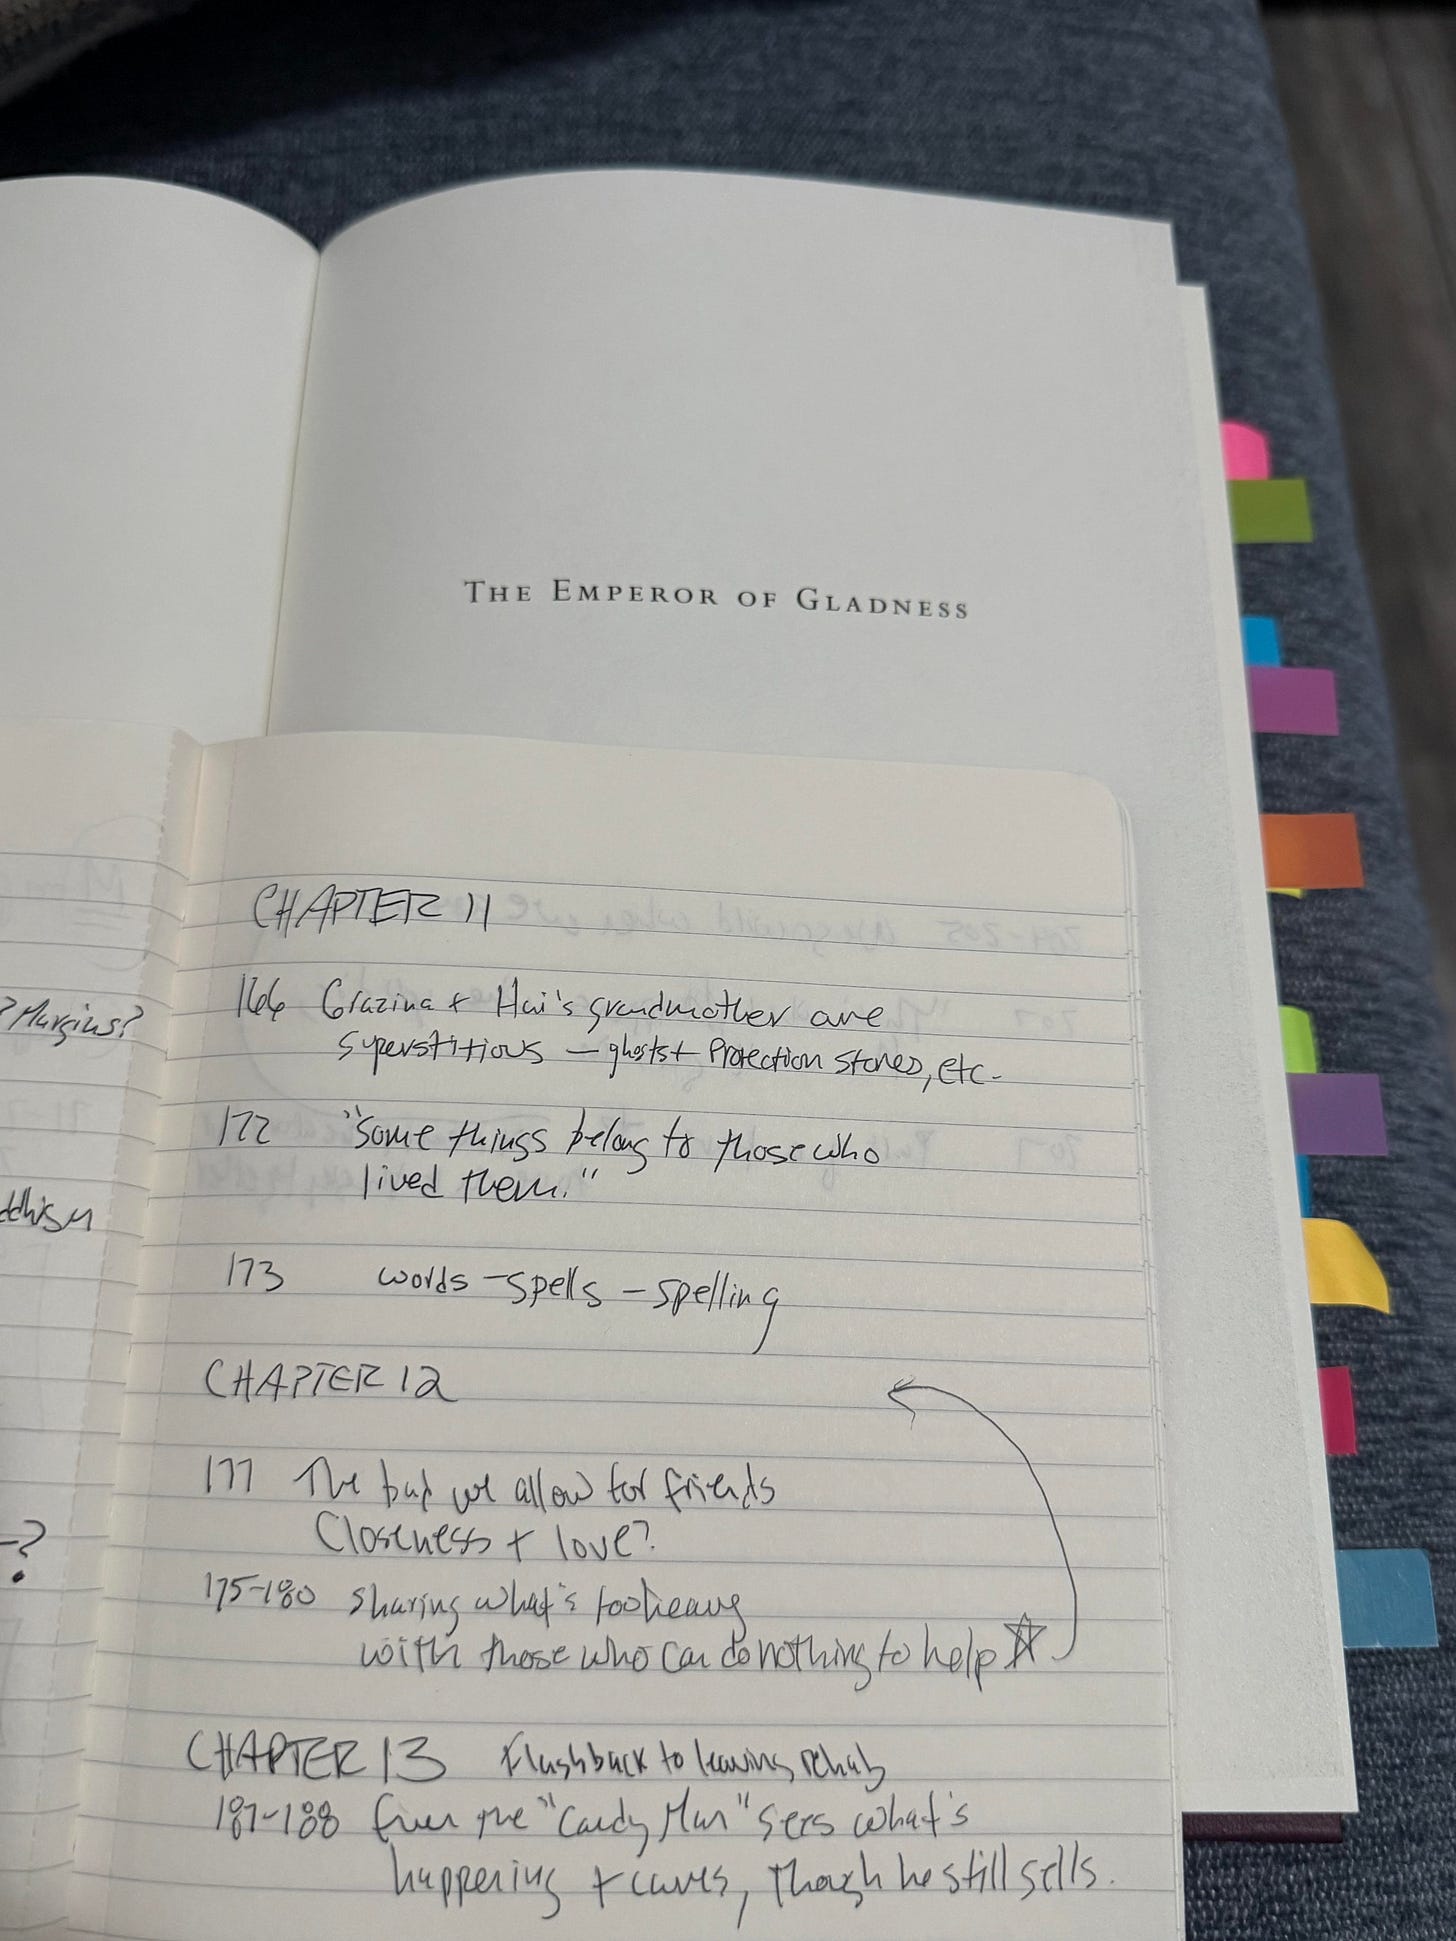 THE EMPEROR OF GLADNESS
? Margins?
ddhism
-?
CHAPTER 11
166 Grazina + Hai's grandmother are
superstitious — ghosts + protection stones, etc.
172 "Some things belong to those who
lived them."
173 words - spells - spelling
CHAPTER 12
177 The bad we allow for friends
Closeness + love?
175-180 sharing what's too heavy
with those who can do nothing to help
CHAPTER 13 Flashback to leaving rehab
187-188 Even the "Candy Man" sees what's
happening + cares, though he still sells.